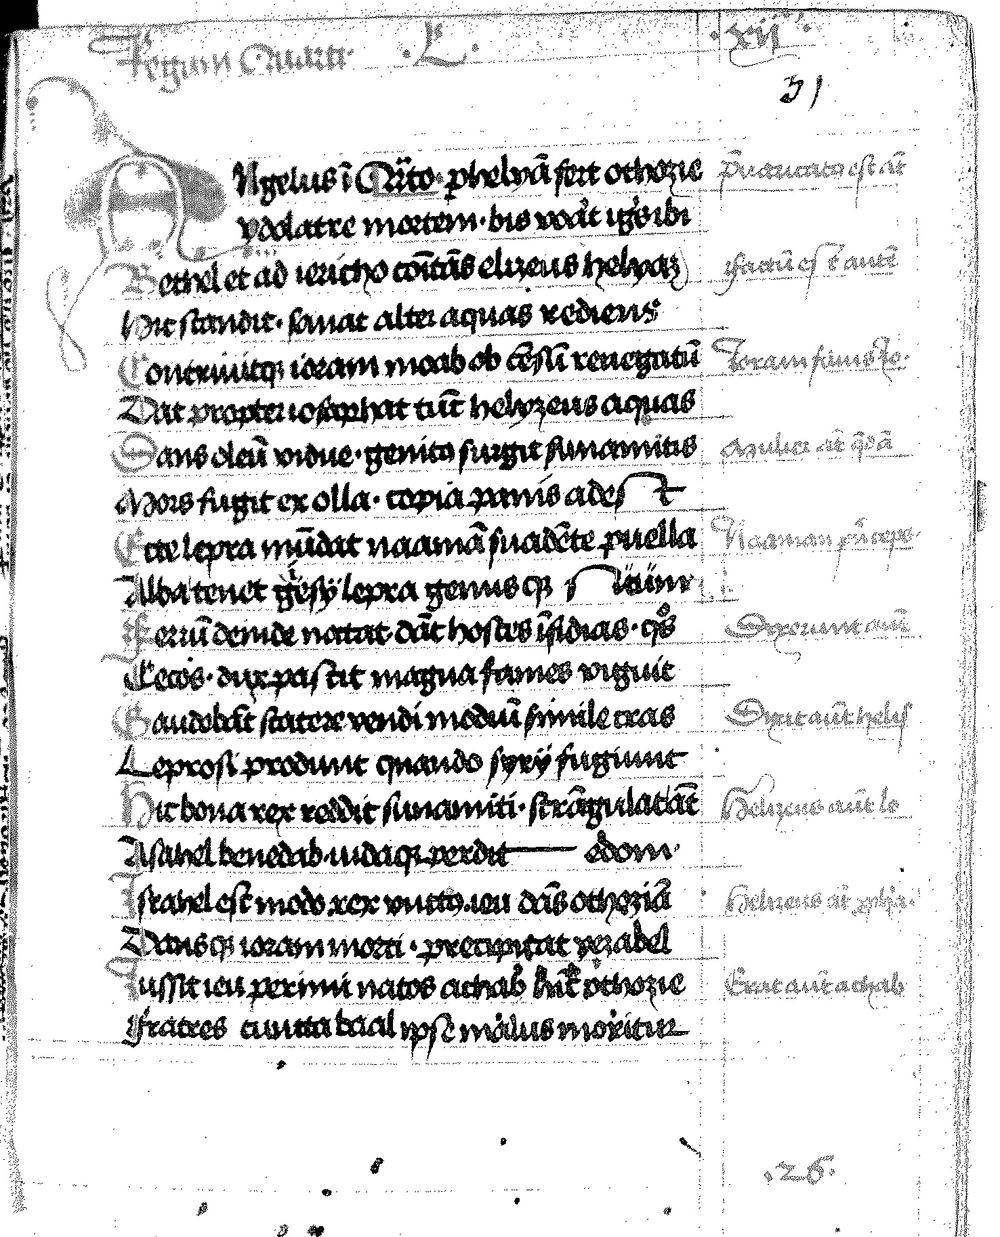 Regum Quarti . L . . xij .
31
ANgelus ī Qu̅to phelyā fert othozie p̄uaricatꝰ est āt
ydolatre mortem · bis vocāt ig̅s ibi
Bethel et ad iericho cōitās elizeus helyaz factū est āutē
Hic scandit · sanat alter aquas rediens
Contriuitqꝫ ioram moab ob cēsū renegatū Ioram filius
Dat propter iosaphat tūc helyzeus aquas
Dans oleū vidue · genitꝰ surgit sunamitis Mulier āt q̄dā
Mors fugit ex olla · copia panis adest
Ecce lepra mūdat naamā suadēte puella Naaman p̄nceps
Alba tenet gesy lepra genus qꝫ suum
Ferrū deinde natat dāt hostes īsidias · q̊s Dixerunt aūt
Cecos · dux pascit magna fames viguit
statere vendi modiū simile cras Dixit aūt helis
Leprosi produnt quando syrij fugiunt
Hic bona rex reddit sunamiti · strāgulat Helizeus aūt lo
Asahel benedab iudaqꝫ perdit edom
Israhel est modo rex vnctꝰ ieu dās othoziā Helizeus āt ꝓpha
Dansqꝫ ioram morti · precipitat yezabel
Iussit ieu perimi natos achab othozie Erat aūt achab
Fratres cuncta baal ipse malus moritur
. 26 .